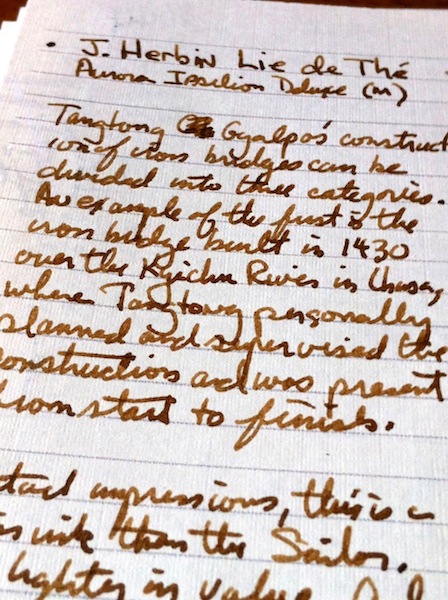 · J. Herbin Lie de Thé
Aurora Ipsilion Deluxe (M)
Tangtong Gyalpo's construct
ion of iron bridges can be
divided into three categories.
An example of the first is the
iron bridge built in 1430
over the Kyichu River in
where Tangtong personally
planned and supervised the
construction and was present
from start to finish.
impressions, this is a
ink than the Sailor.
lighter in value.